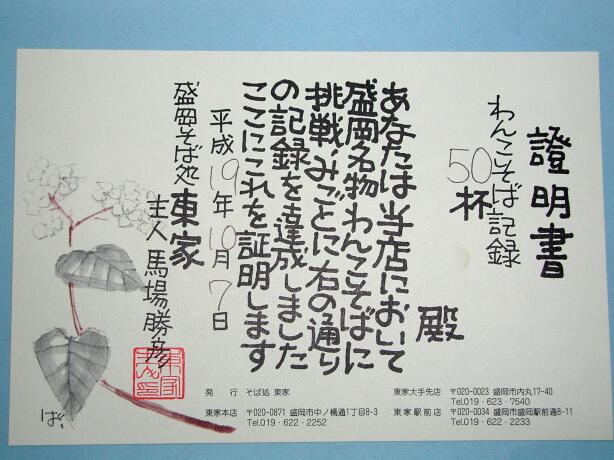 證明書
わんこそば記録
50杯
殿
あなたは当店において
盛岡名物わんこそばに
挑戦みごとに右の通り
の記録を達成しました
ここにこれを証明します
平成19年10月7日
盛岡そば処 東家
主人 馬場勝彦
ば、
発 行 そば処 東家
東家本店 〒020-0871 盛岡市中ノ橋通1丁目8-3
Tel.019・622・2252
東家大手先店 〒020-0023 盛岡市内丸17-40
Tel.019・623・7540
東家駅前店 〒020-0034 盛岡市盛岡駅前通8-11
Tel.019・622・2233